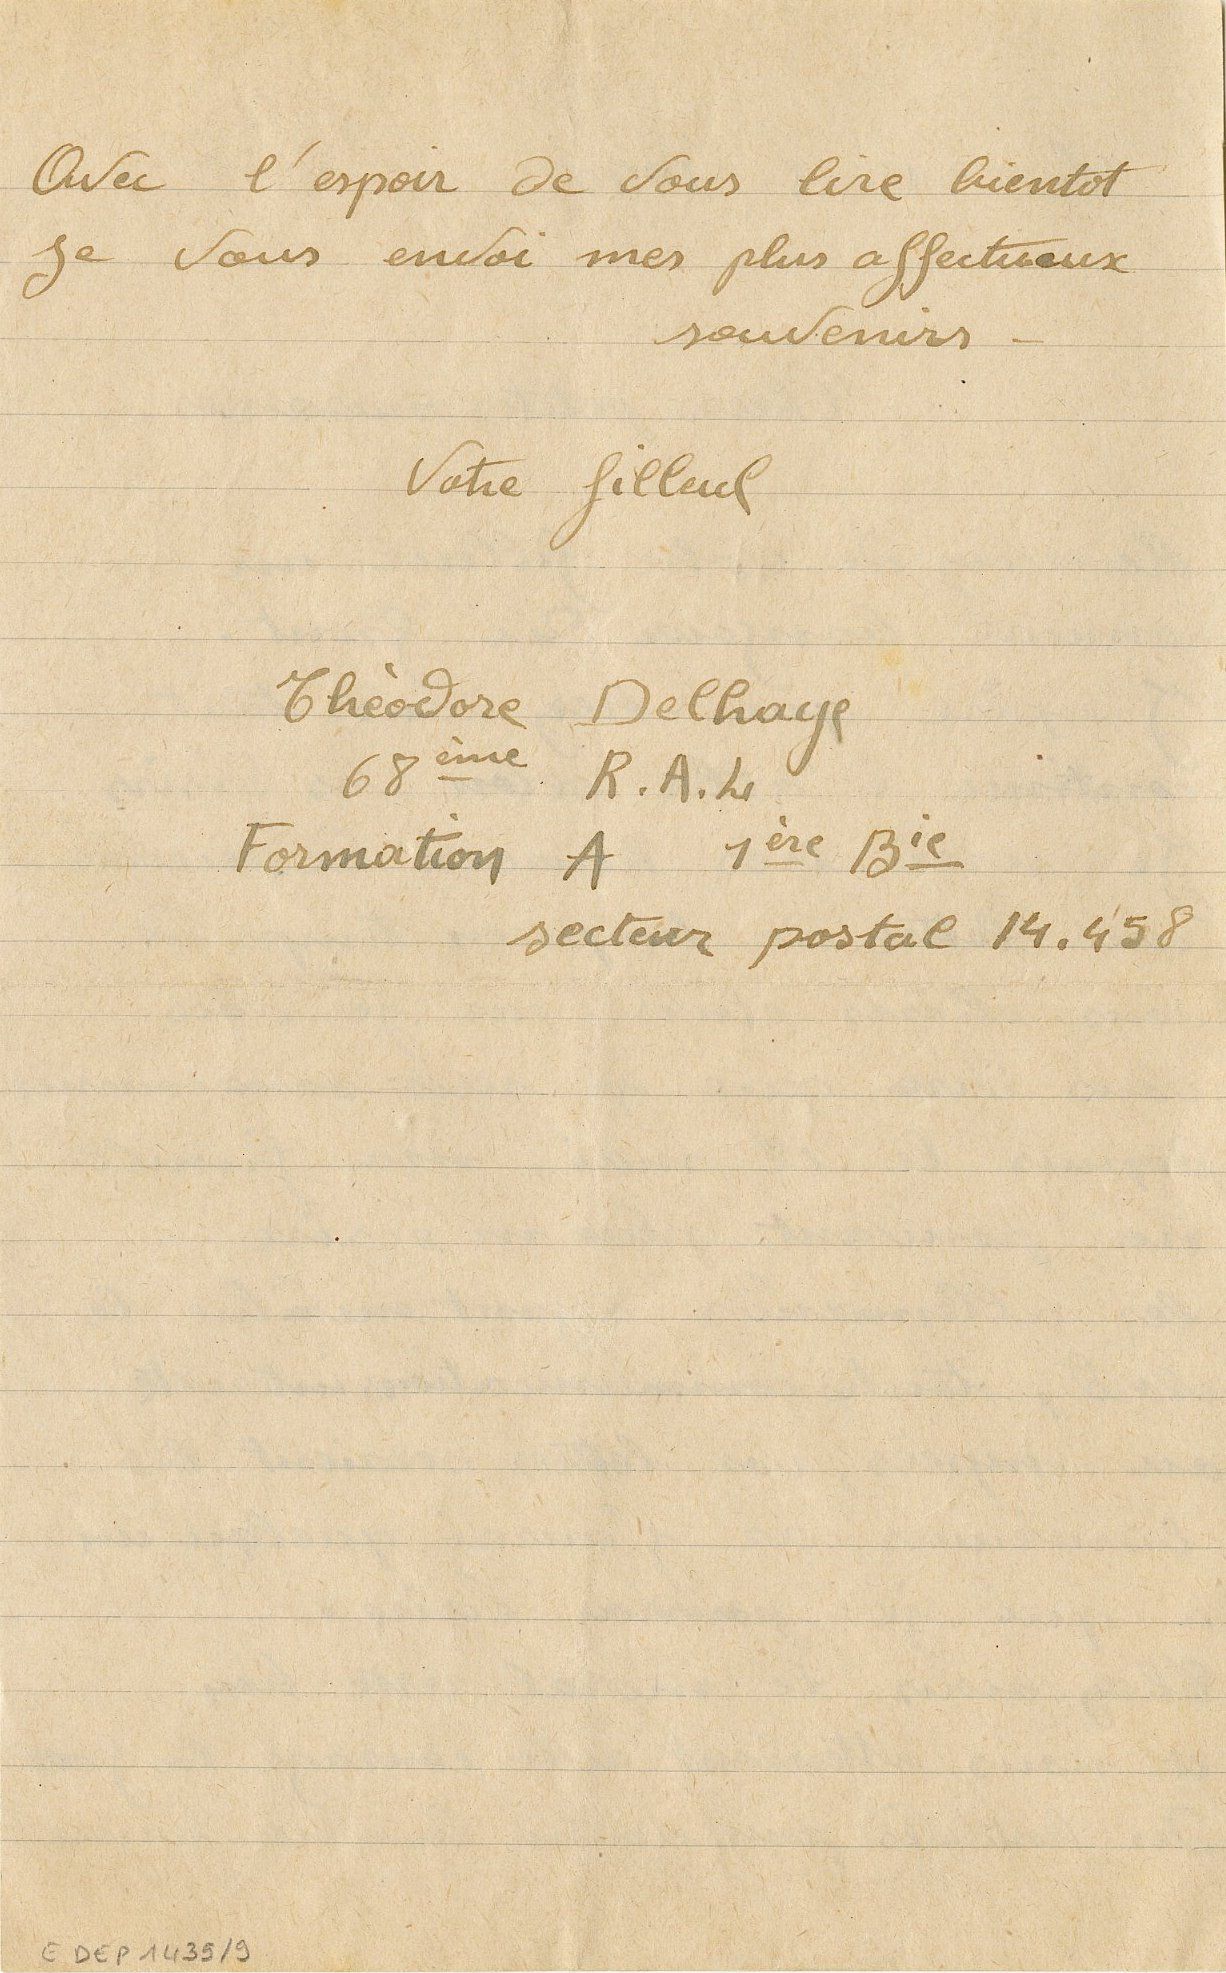 Avec l'espoir de vous lire bientot
Je vous envoi mes plus affectueux
souvenirs -
Votre filleul
Thèodore Delhaye
68ème R.A.L
Formation A 1ère Bie
secteur postal 14.458
E DEP 1435/9